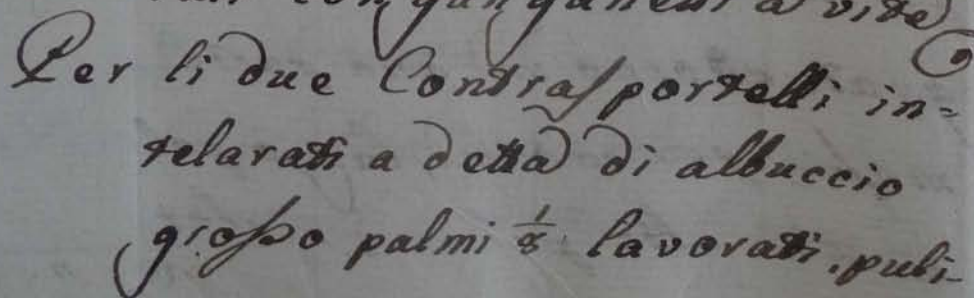 con ganganelli a vite
Per li due Contrasportelli in=
telarati a detta di albuccio
grosso palmi 1/8 lavorati, puli-